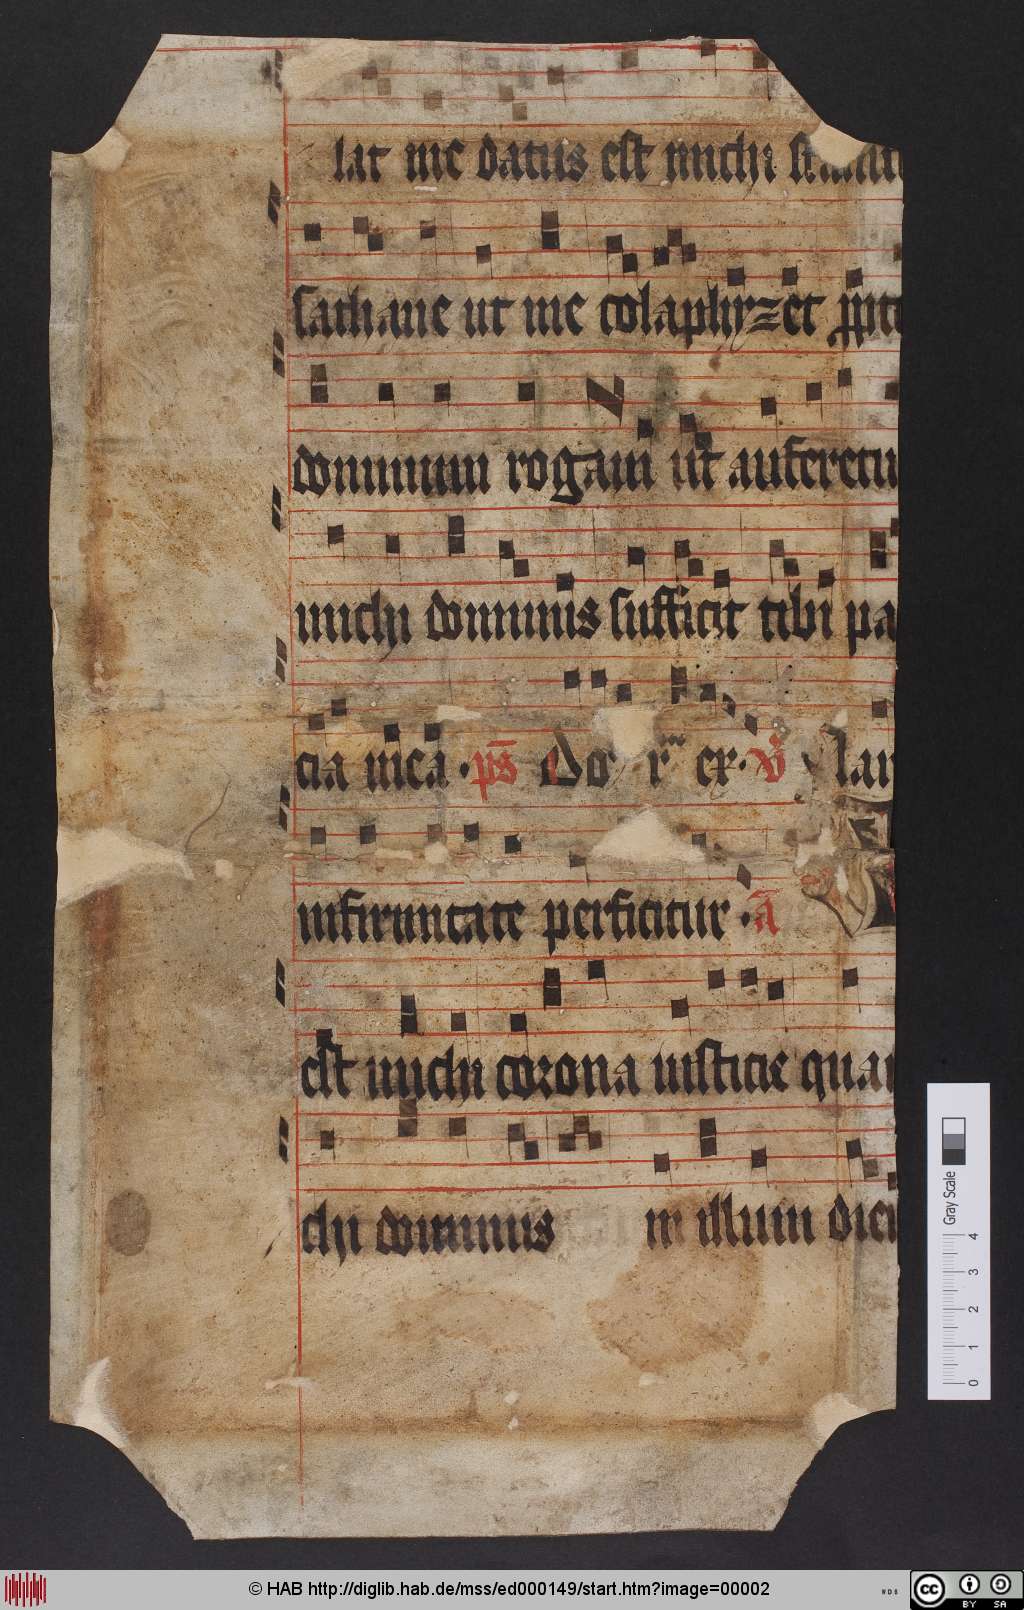 lat me datus est michi
sathane ut me colaphyzet
dominum rogaui ut auferetu
michi dominus sufficit tibi pa
cia mea · ps Do r ex · v
infirmitate perficitur · a
est michi corona iusticie qua
chi dominus in illum die
Gray Scale
0 1 2 3 4
© HAB http://diglib.hab.de/mss/ed000149/start.htm?image=00002
cc BY SA